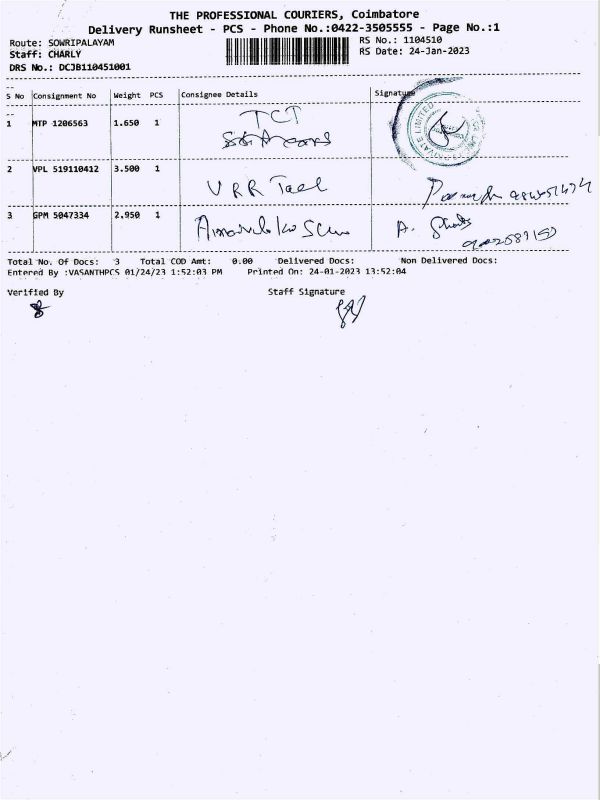 THE PROFESSIONAL COURIERS, Coimbatore
Delivery Runsheet - PCS - Phone No.:0422-3505555 - Page No.:1
Route: SOWRIPALAYAM RS No.: 1104510
Staff: CHARLY RS Date: 24-Jan-2023
DRS No.: DCJB110451001
S No Consignment No Weight PCS Consignee Details Signature
1 MTP 1206563 1.650 1 TCT
2 VPL 519110412 3.500 1 VRR
3 GPM 5047334 2.950 1 A.
Total No. Of Docs: 3 Total COD Amt: 0.00 Delivered Docs: Non Delivered Docs:
Entered By :VASANTHPCS 01/24/23 1:52:03 PM Printed On: 24-01-2023 13:52:04
Verified By Staff Signature